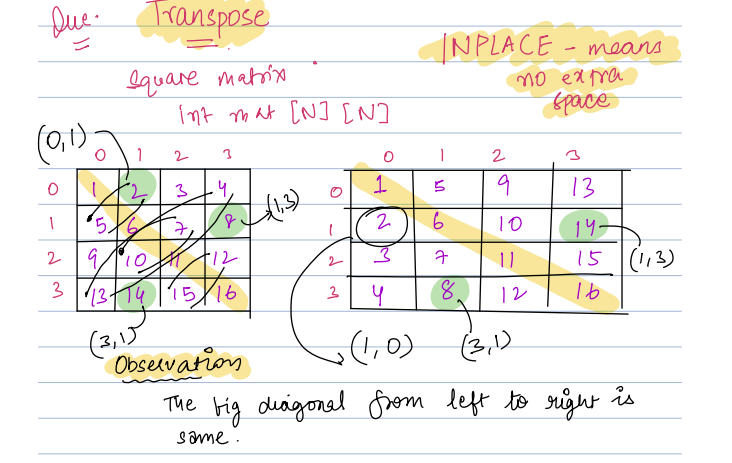 Que. Transpose
INPLACE - means
no extra
space
square matrix
int mat [N] [N]
(0,1)
0 1 2 3
0 1 2 3 4
1 5 6 7 8 (1,3)
2 9 10 11 12
3 13 14 15 16
(3,1)
0 1 2 3
0 1 5 9 13
1 2 6 10 14
2 3 7 11 15 (1,3)
3 4 8 12 16
(1,0) (3,1)
Observation
The big diagonal from left to right is
same.